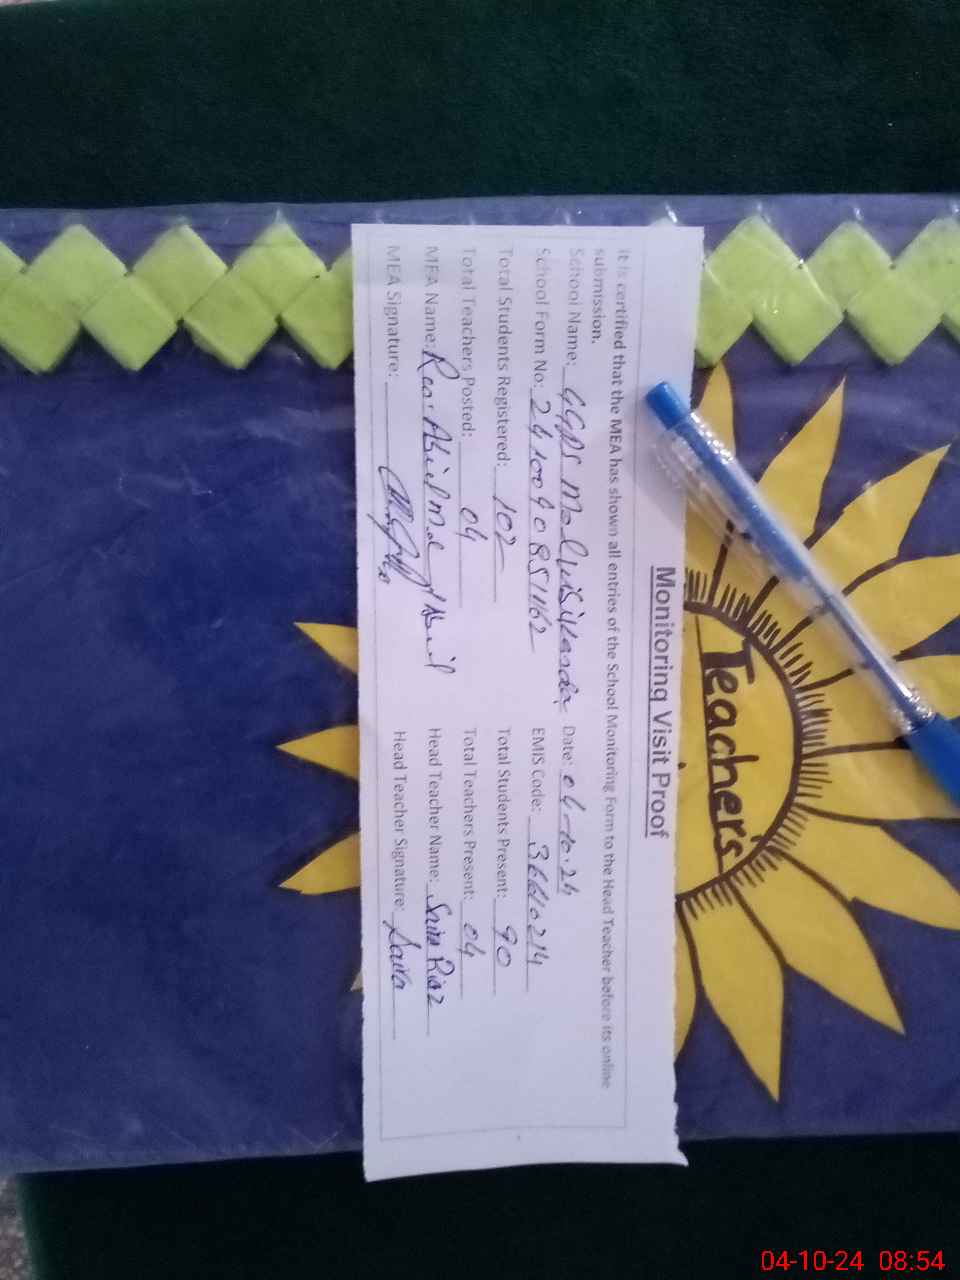 Monitoring Visit Proof
It is certified that the MEA has shown all entries of the School Monitoring Form to the Head Teacher before its online
submission.
School Name: GGPS Date: 04-10-24
School Form No: EMIS Code:
Total Students Registered: 102 Total Students Present: 90
Total Teachers Posted: 04 Total Teachers Present: 04
MEA Name: Head Teacher Name: Saira Riaz
MEA Signature: Head Teacher Signature: Saira
Teacher's
04-10-24 08:54